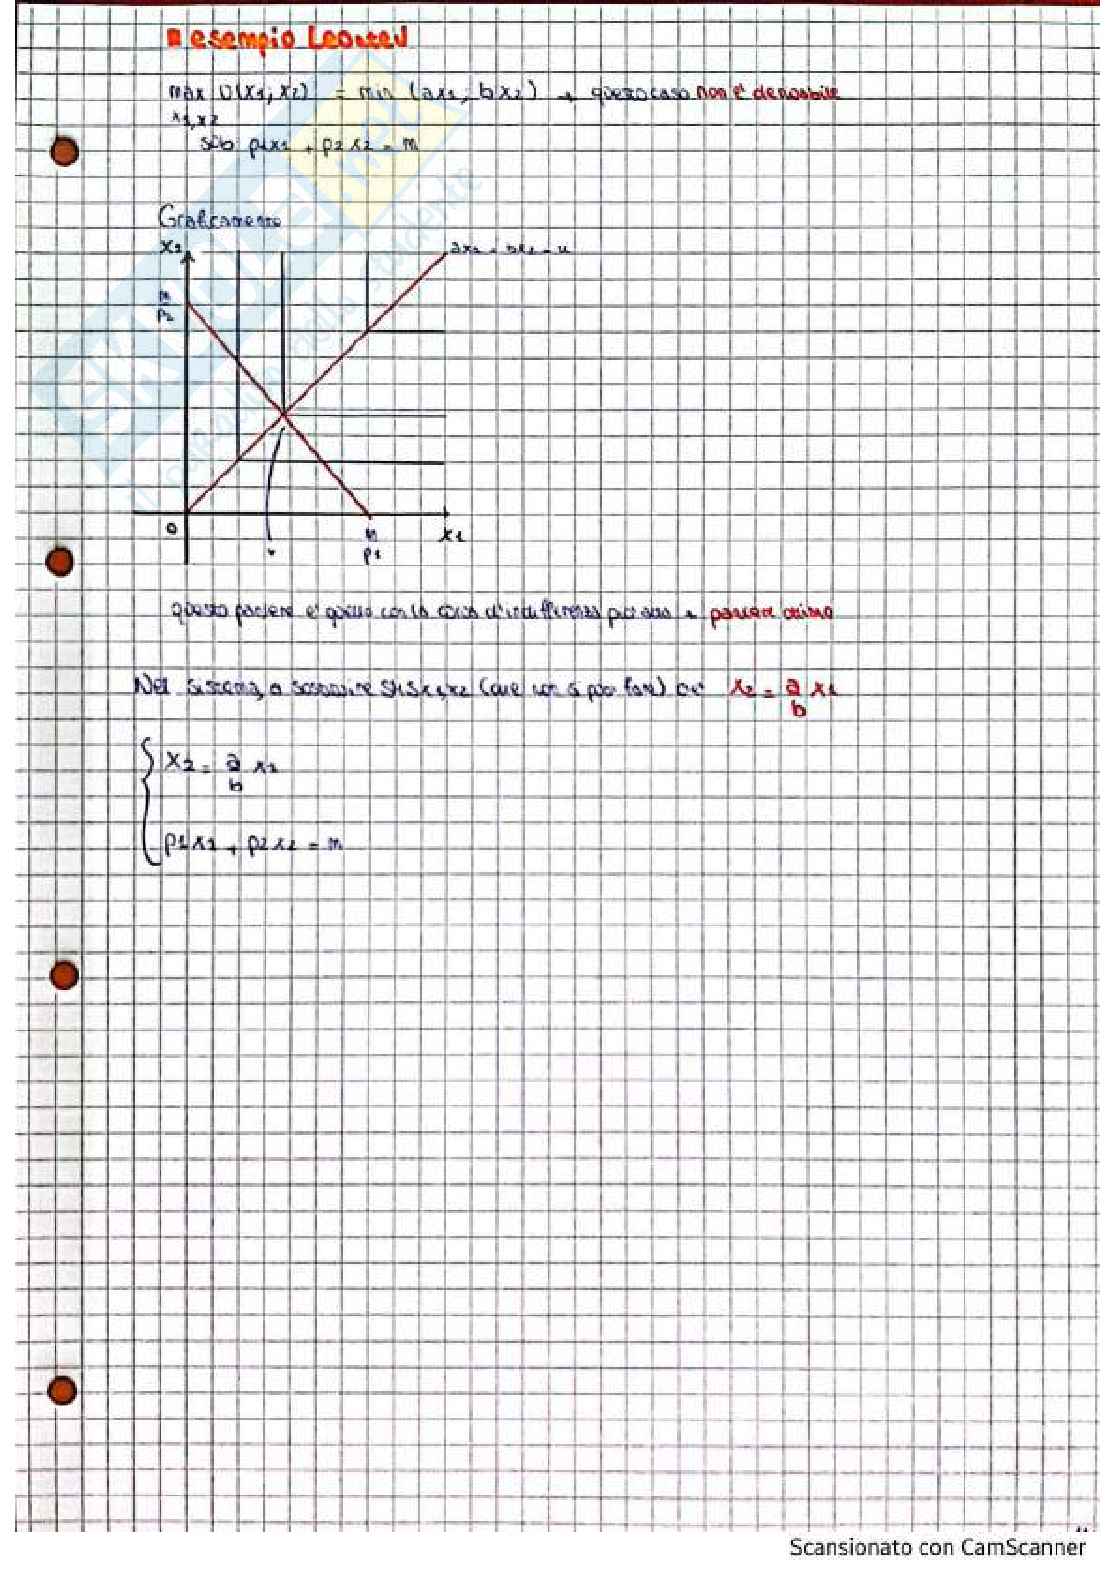 esempio Leontev
max U(x1; x2) = min (ax1; bx2) → questo caso non è derivabile
x1,x2
s.to p1x1 + p2x2 = m
Graficamente
x2
ax1 = bx2 = u
m
p2
0
m
p1
x1
questo paniere è quello con la curva d'indifferenza più alta → paniere ottimo
Nel sistema, a sostituire SMS (che non si può fare) c'è x2 = a x1
b
x2 = a x1
b
p1x1 + p2x2 = m
SKUOLA.net
Scansionato con CamScanner